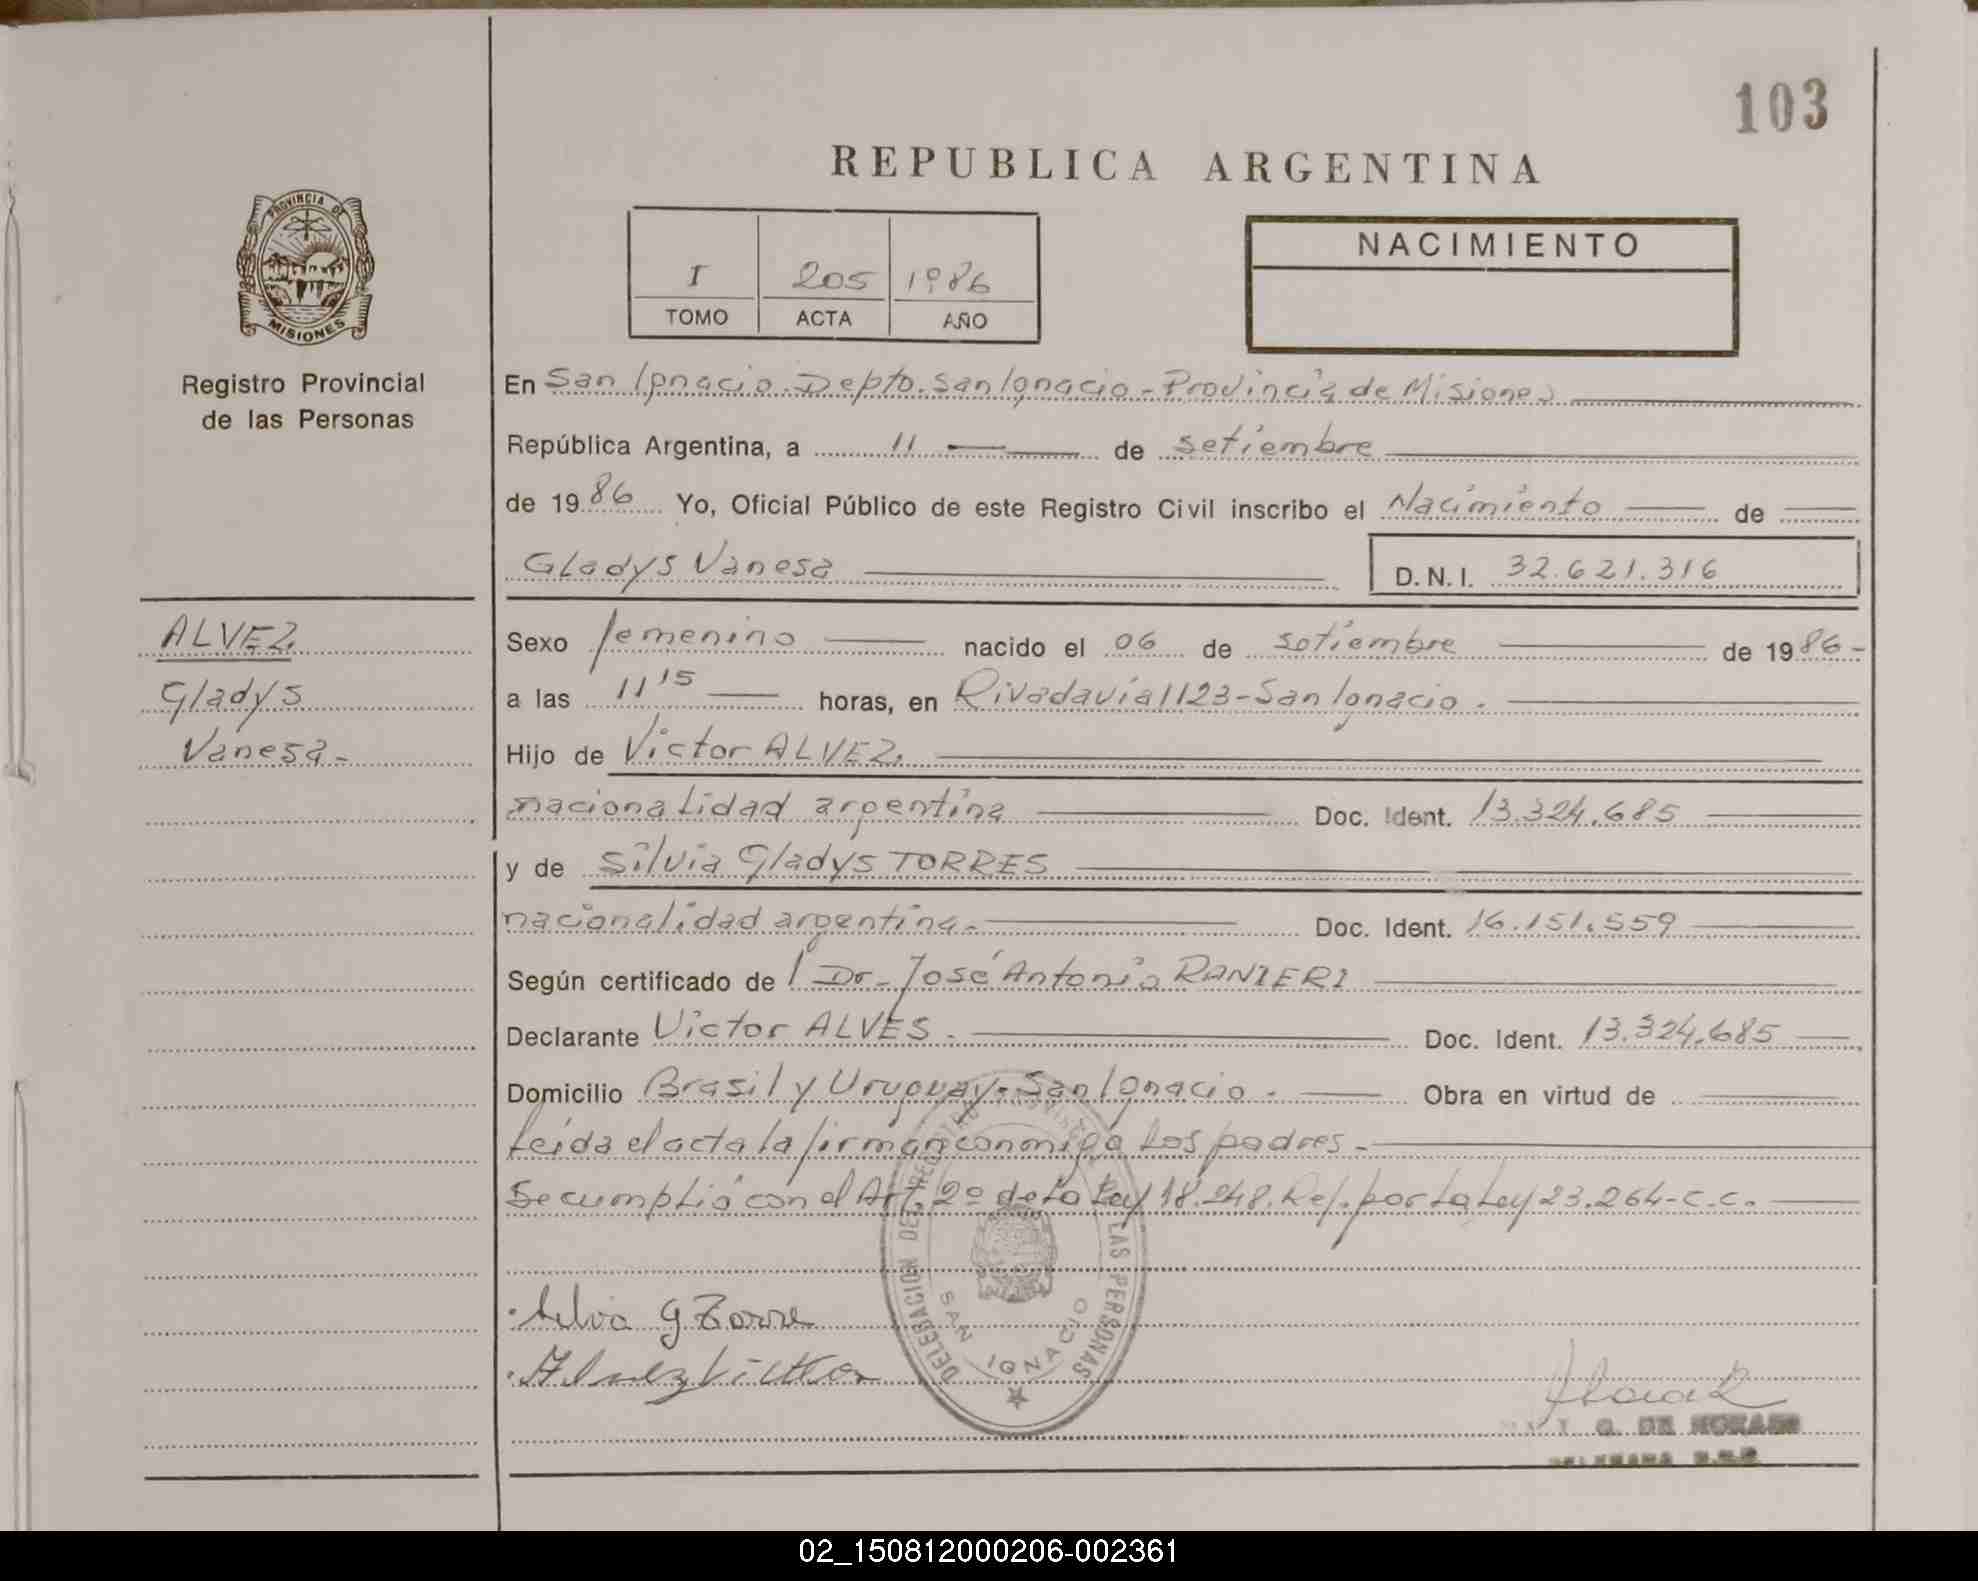 103
REPUBLICA ARGENTINA
PROVINCIA DE
MISIONES
Registro Provincial
de las Personas
I 205 1986
TOMO ACTA AÑO
NACIMIENTO
En San Ignacio. Depto. San Ignacio - Provincia de Misiones
República Argentina, a 11 de setiembre
de 1986 Yo, Oficial Público de este Registro Civil inscribo el Nacimiento de
Gladys Vanesa D.N.I. 32.621.316
ALVEZ
Gladys
Vanesa-
Sexo femenino nacido el 06 de setiembre de 1986-
a las 11 15 horas, en Rivadavia 1123-San Ignacio.
Hijo de Victor ALVEZ.
nacionalidad argentina Doc. Ident. 13.324.685
y de Silvia Gladys TORRES
nacionalidad argentina. Doc. Ident. 16.151.559
Según certificado de l Dr. José Antonio RANIERI
Declarante Victor ALVES. Doc. Ident. 13.324.685
Domicilio Brasil y Uruguay-San Ignacio. Obra en virtud de
Leida el acta la firman conmigo los padres-
Se cumplió con el Art. 2º de la Ley 18.248. Ref. por la Ley 23.264-C.C.
Silvia G Torre
Alvez Victor
DELEGACION DEL REGISTRO DE LAS PERSONAS
SAN IGNACIO
G. DE
02_150812000206-002361